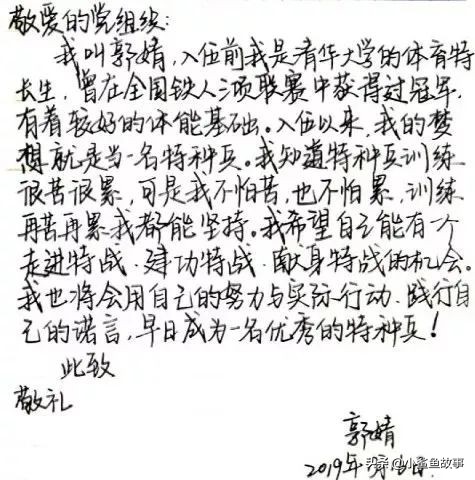 敬爱的党组织：
我叫郭婧，入伍前我是清华大学的体育特
长生，曾在全国铁人三项联赛中获得过冠军，
有着较好的体能基础。入伍以来，我的梦
想就是当一名特种兵。我知道特种兵训练
很苦很累，可是我不怕苦，也不怕累，训练
再苦再累我都能坚持。我希望自己能有一个
走进特战、建功特战、献身特战的机会。
我也将会用自己的努力与实际行动、践行自
己的诺言，早日成为一名优秀的特种兵！
此致
敬礼
郭婧
2019年
头条@小鲨鱼故事